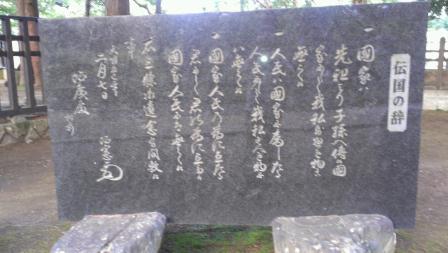 伝国の辞
一 国家は
先祖より子孫へ伝候国
家にして我私すべき物に
無之候
一 人民は国家に属したる
人民にして我私すべき物に
無之候
一 国家人民の為に立たる
君にて君の為に立たる
国家人民には無之候
右三条御遺念有間敷候
事
二月七日
治広殿
治憲